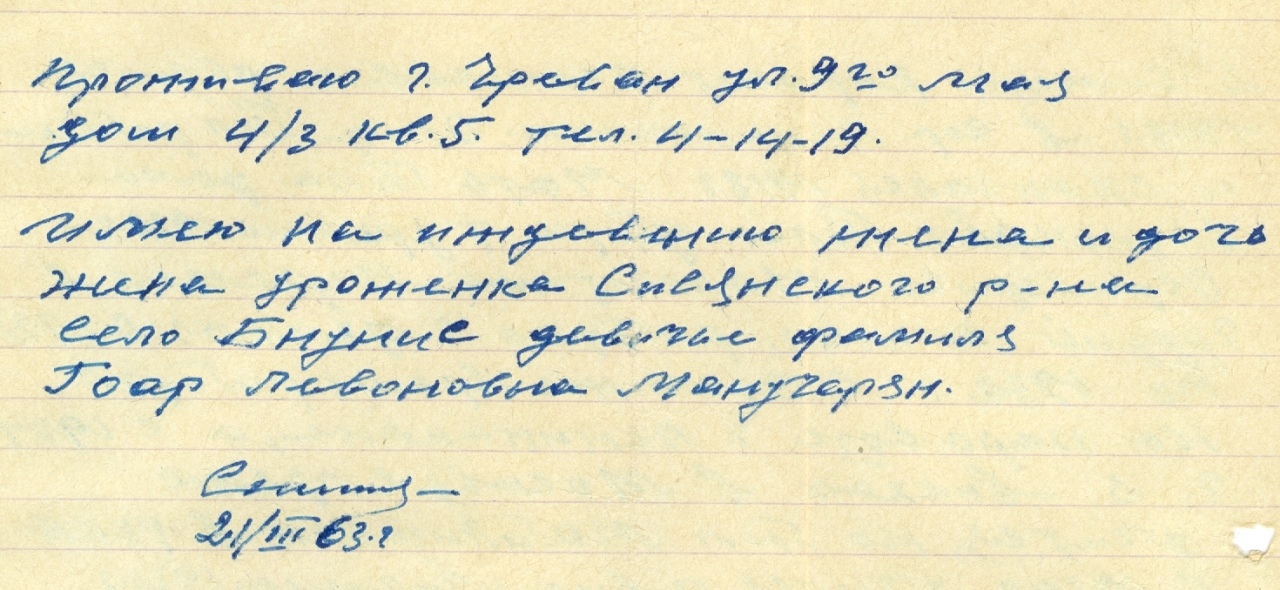 Проживаю г. Ереван ул. 9го мая
дом 4/3 кв. 5. тел. 4-14-19.
Имею на иждевению жена и дочь
жена уроженка Сисянского р-на
село Бнунис девичье фамиля
Гоар Левоновна Манучарян.
21/III 63.г